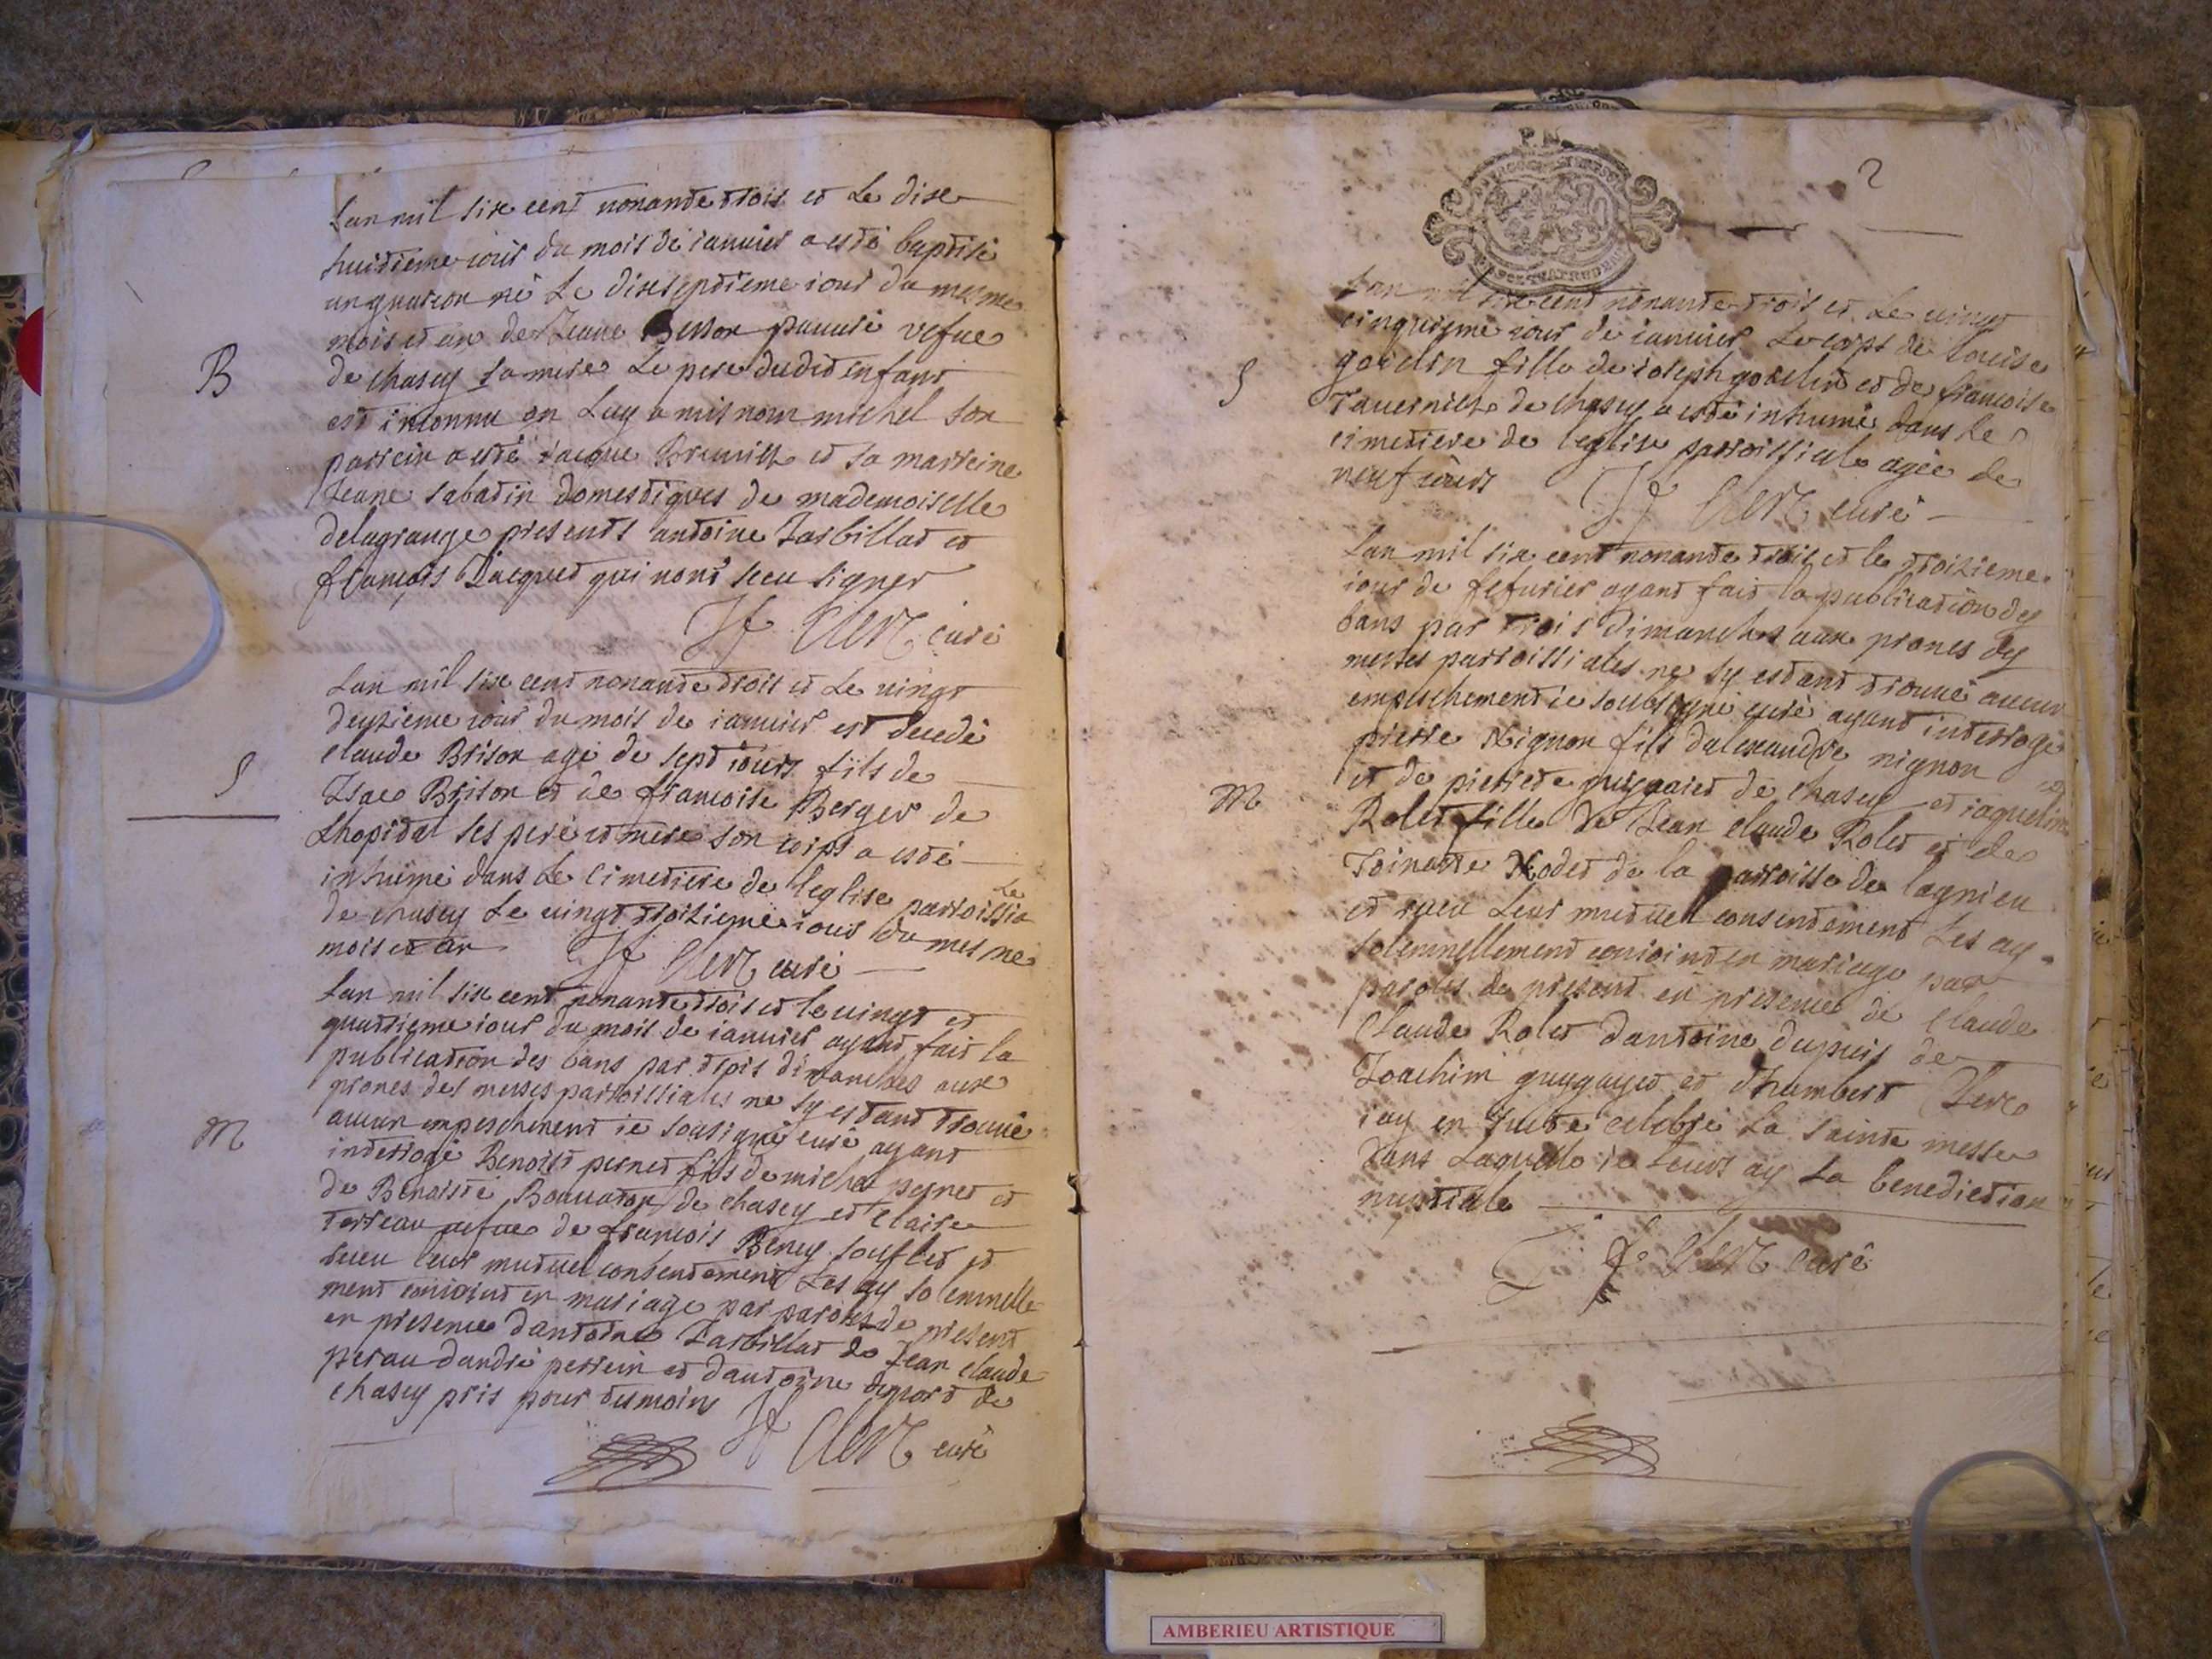 Lan mil six cent nonante trois et Le dixe
huictieme iour du mois de ianuier a esté baptisé
un garcon né Le dixseptieme iour du mesme
mois et an de Jeane Besson pauure vefue
B
de chasey sa mere Le pere dudit enfant
est inconnu on Luy a mis nom michel son
parrein a esté iacque et sa marreine
Jeane sabatin domestiques de mademoiselle
delagrange presents antoine Tarbillat et
françois Jacquet qui nont sceu signer
Clerc curé
Lan mil six cent nonante trois et Le vingt
deuzieme iour du mois de ianuier est decedé
claude Brison agé de sept iours fils de
S
Isac Brison et de francoise Berger de
Lhopital ses pere et mere son corps a esté
inhumé dans Le cimetiere de leglise parroissia
le
de chasey Le vingt troizieme iour du mesme
mois et an Clerc curé
Lan mil six cent nonante trois et le vingt et
quatrieme iour du mois de ianuier ayant fait la
publication des bans par trois dimanches aux
prones des messes parroissiales ne sy estant trouué
M
aucun empeschement ie sousigné curé ayant
interrogé Benoist pernet fils de michel pernet et
de Benoiste de chasey et claire
terreau vefue de francois Beney et
receu leur mutuel consentement Les ay solemnelle
ment conioint en mariage par paroles de present
en presence dantoine Tarbillat de Jean claude
perau dandré perrein et dantoine de
chasey pris pour tesmoins
Clerc curé
P. N.
2
Lan mil six cent nonante trois et Le vingt
cinquieme iour de ianuier Le corps de louise
S
goielin fille de ioseph goielin et de francoise
de chasey a esté inhumé dans Le
cimetiere de leglise parroissiale agée de
neuf iours Clerc curé
Lan mil six cent nonante trois et le troizieme
iour de fefurier ayant fait la publication des
bans par trois dimanches aux prones des
messes parroissiales ne sy estant trouué aucun
empeschement ie soubsigné curé ayant interrogé
pierre Nignon fils dalexandre nignon
M
et de pierrete de chasey et iaqueline
Rolet fille de Jean claude Rolet et de
Toinette Nodet de la parroisse de lagnieu
et receu Leur mutuel consentement Les ay
solemnellement conioint en mariage par
paroles de present en presence de claude
Claude Rolet dantoine dupuis de
Joachim guygayet et dhumbert
iay en suite celebré La sainte messe
dans Laquelle ie Leurs ay La benediction
nuptiale
Clerc curé
AMBERIEU ARTISTIQUE